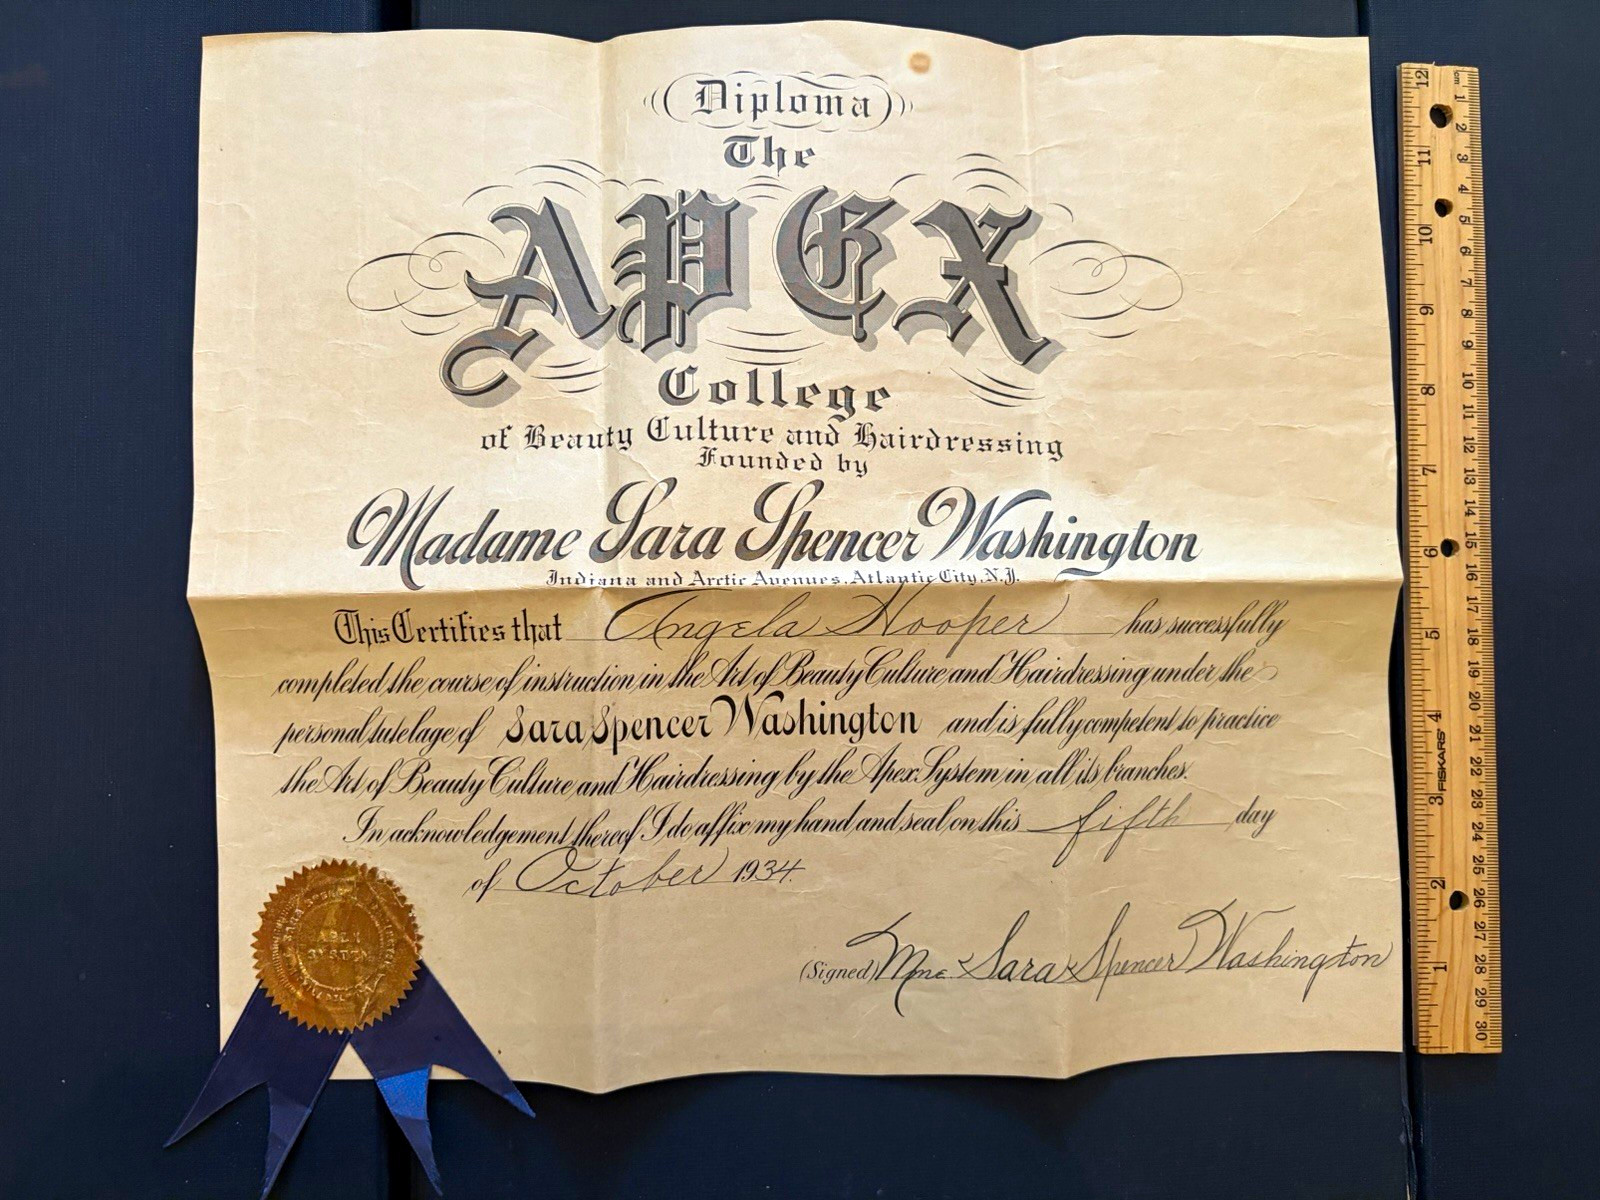 Diploma
The
APEX
College
of Beauty Culture and Hairdressing
Founded by
Madame Sara Spencer Washington
Indiana and Arctic Avenues, Atlantic City, N.J.
This Certifies that Angela Hooper has successfully
completed the course of instruction in the Art of Beauty Culture and Hairdressing under the
personal tutelage of Sara Spencer Washington and is fully competent to practice
the Art of Beauty Culture and Hairdressing by the Apex System in all its branches.
In acknowledgement thereof I do affix my hand and seal on this fifth day
of October 1934.
(Signed) Mme. Sara Spencer Washington
APEX
SYSTEM
12 11 10 9 8 7 6 5 4 3 2 1
FISKARS
cm 1 2 3 4 5 6 7 8 9 10 11 12 13 14 15 16 17 18 19 20 21 22 23 24 25 26 27 28 29 30